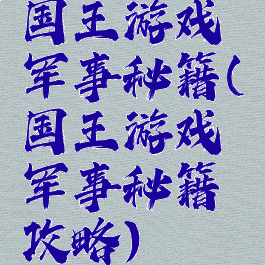 国王游戏
军事秘籍(
国王游戏
军事秘籍
攻略)